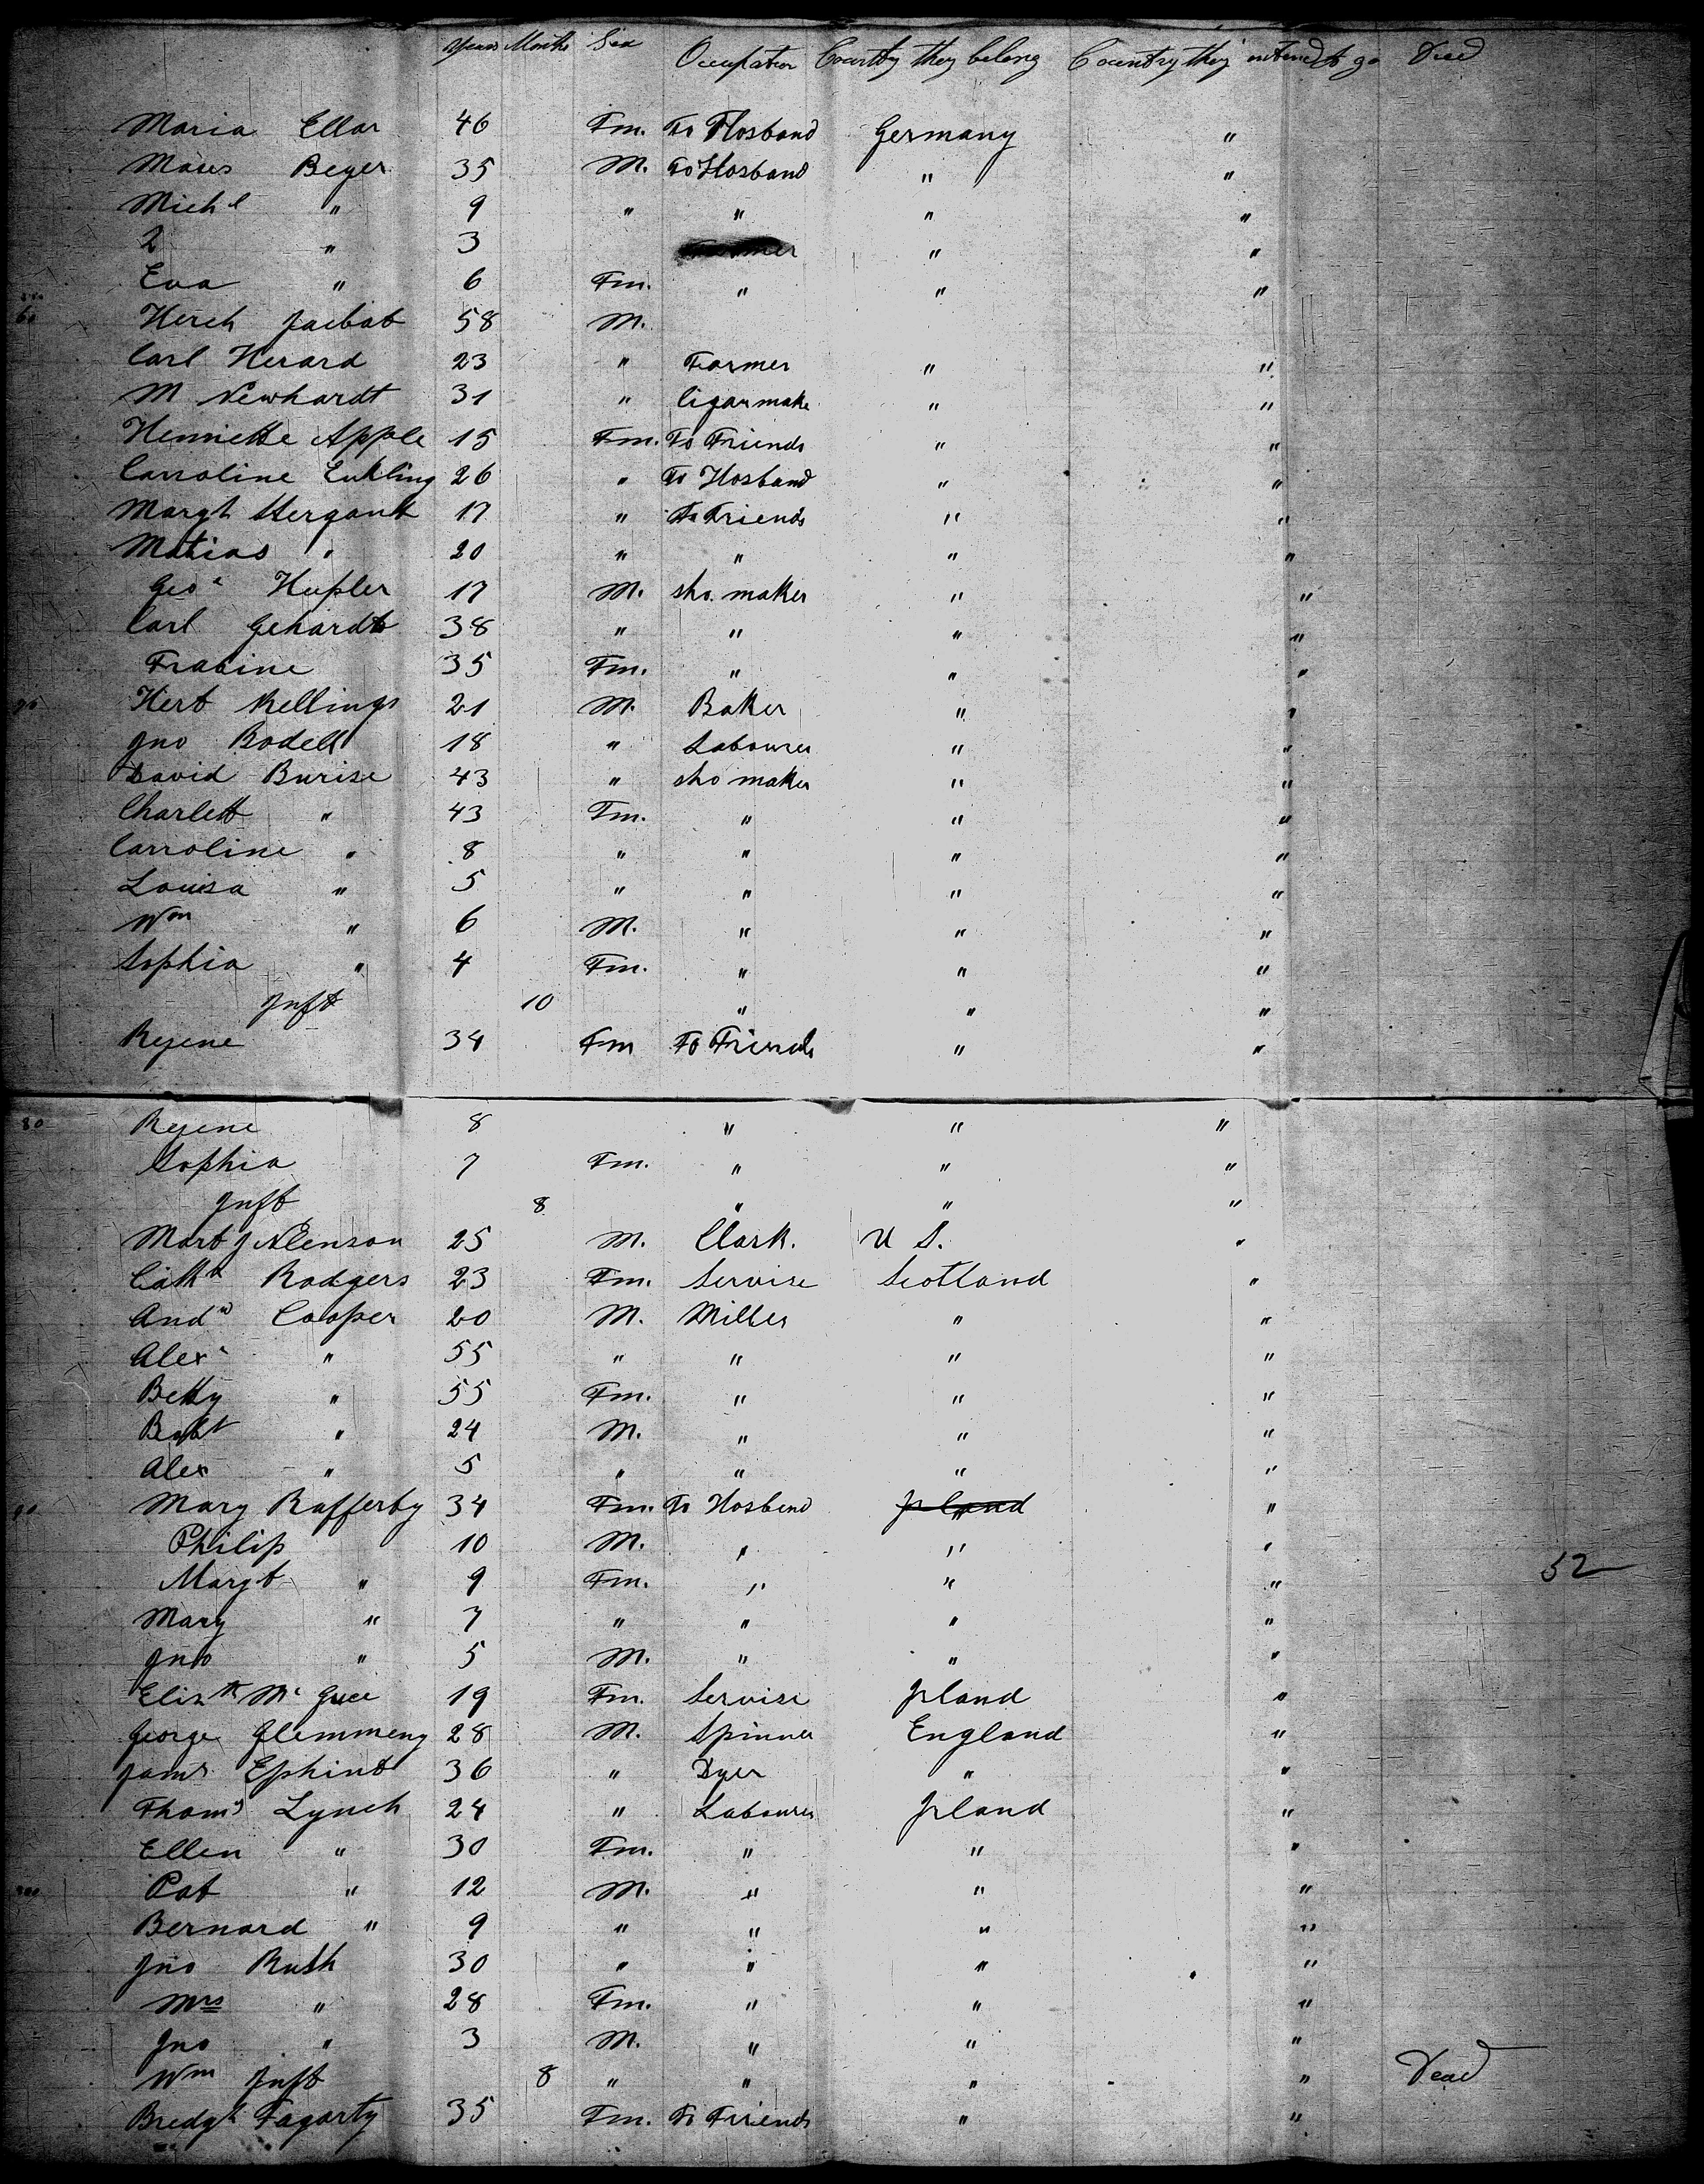 Years Months Sex Occupation Country they belong Country they intend to go Died
Maria Ellar 46 Fm. To Hosband Germany "
Beyer 35 M. To Hosband " "
Mich l " 9 " " " "
2 " 3 " "
Eva " 6 Fm. " " "
60 58 M.
Carl Herard 23 " Farmer " "
M Newhardt 31 " Cigar make " "
Henriette Apple 15 Fm. To Friends " "
Carroline 26 " To Hosband " "
Margt 17 " To Friends " "
Matias " 20 " " " "
Geo Hupler 17 M. sho. maker " "
Carl Gehardt 38 " " " "
35 Fm. " " "
70 21 M. Baker " "
Jno Bodell 18 " Labourer " "
David Burise 43 " sho maker " "
Charlett " 43 Fm. " " "
Carroline " 8 " " " "
Louisa " 5 " " " "
Wm " 6 M. " " "
Sophia " 4 Fm. " " "
Inft 10 " " "
Rejene 34 Fm To Friends " "
80 Rejene 8 " " "
Sophia 7 Fm. " " "
Inft 8 " " "
25 M. Clark. U S. "
Cathe Rodgers 23 Fm. Servise Scotland "
Andw Cooper 20 M. Miller " "
Alexr " 55 " " " "
Betty " 55 Fm. " " "
" 24 M. " " "
Alex " 5 " " " "
90 Mary Rafferty 34 Fm. To Hosbend Irland "
Philip 10 M. " " "
Margt " 9 Fm. " " " 52
Mary " 7 " " " "
Jno " 5 M. " " "
Elizth Mc 19 Fm. Servise Irland "
George Flemmeng 28 M. Spinner England "
James Ephint 36 " Dyer " "
Thoms Lynch 24 " Labourer Irland "
Ellen " 30 Fm. " " "
Pat " 12 M. " " "
Bernard " 9 " " " "
Jno Rush 30 " " " "
Mrs " 28 Fm. " " "
Jno " 3 M. " " "
Wm Inft 8 " " " " Dead
Bredgt Fagarty 35 Fm. To Friends " "